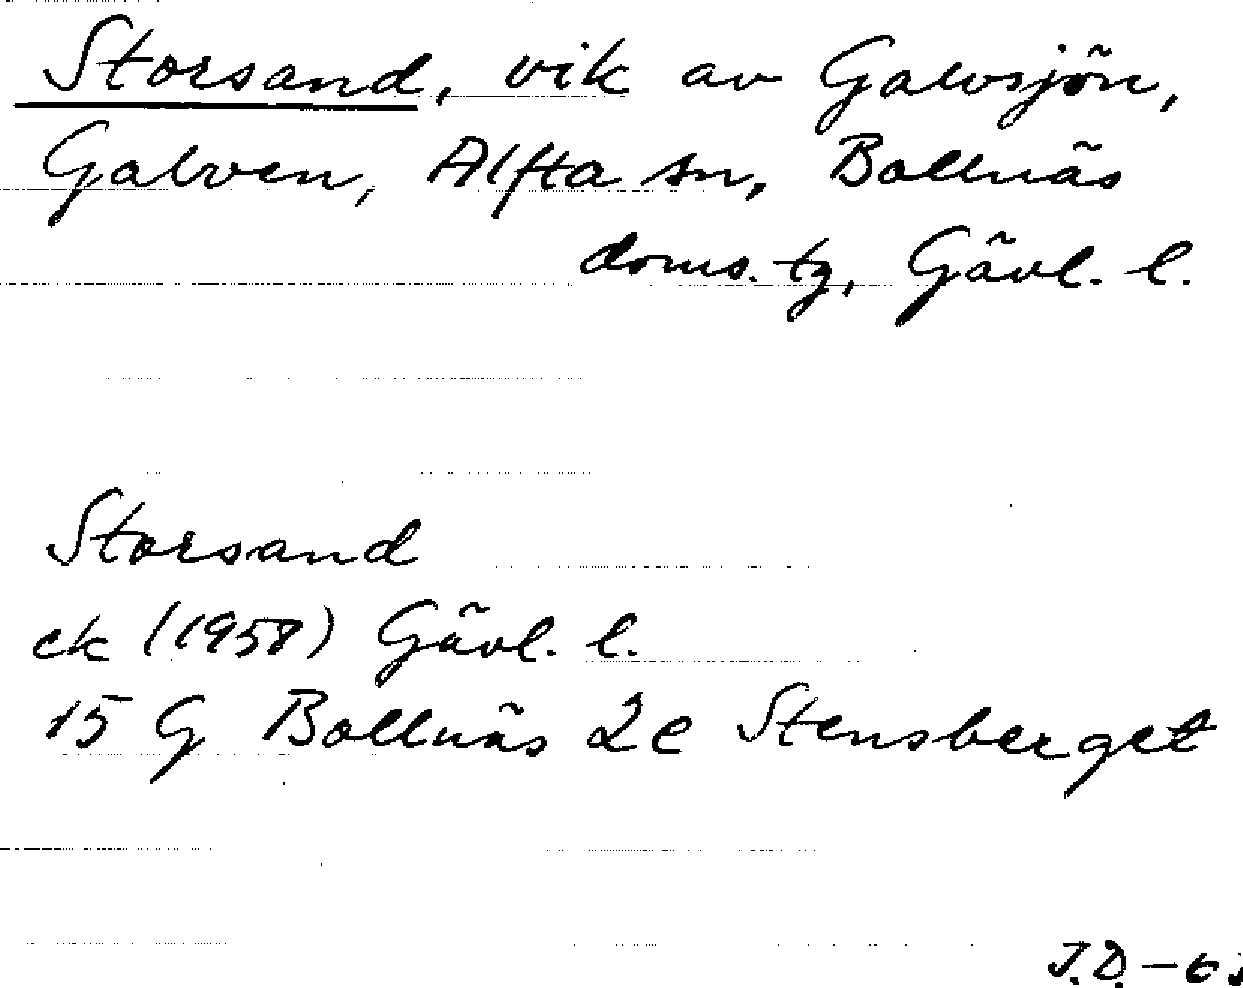 Storsand, vik av Galvsjön,
Galven, Alfta sn, Bollnäs
doms. tg, Gävl. l.
Storsand
ek (1958) Gävl. l.
15 G Bollnäs 2e Stensberget
J.D. -